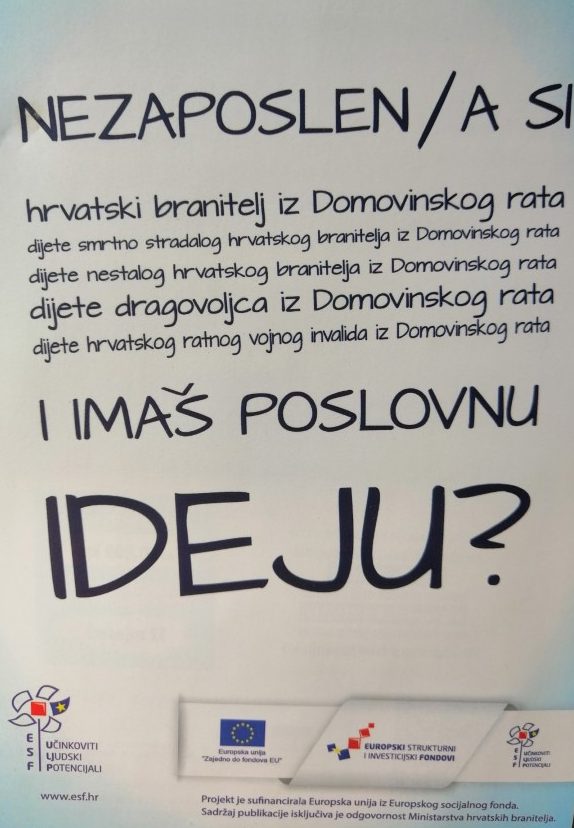 NEZAPOSLEN/A SI
hrvatski branitelj iz Domovinskog rata
dijete smrtno stradalog hrvatskog branitelja iz Domovinskog rata
dijete nestalog hrvatskog branitelja iz Domovinskog rata
dijete dragovoljca iz Domovinskog rata
dijete hrvatskog ratnog vojnog invalida iz Domovinskog rata
I IMAŠ POSLOVNU
IDEJU?
E S F
UČINKOVITI
LJUDSKI
POTENCIJALI
www.esf.hr
Europska unija
"Zajedno do fondova EU"
EUROPSKI STRUKTURNI
I INVESTICIJSKI FONDOVI
ESF
UČINKOVITI
LJUDSKI
POTENCIJALI
Projekt je sufinancirala Europska unija iz Europskog socijalnog fonda.
Sadržaj publikacije isključiva je odgovornost Ministarstva hrvatskih branitelja.